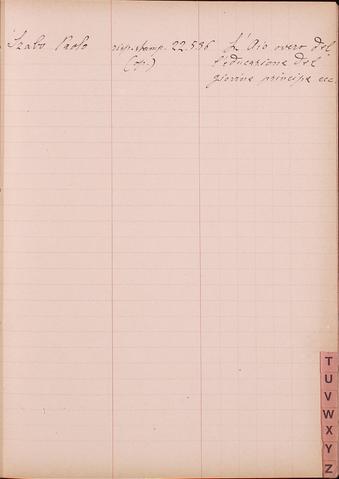 Szabo Paolo risp. stamp. 22.536 L'Aio overo del
(op.) l'educazione del
giovine principe ecc
T
U
V
W
X
Y
Z